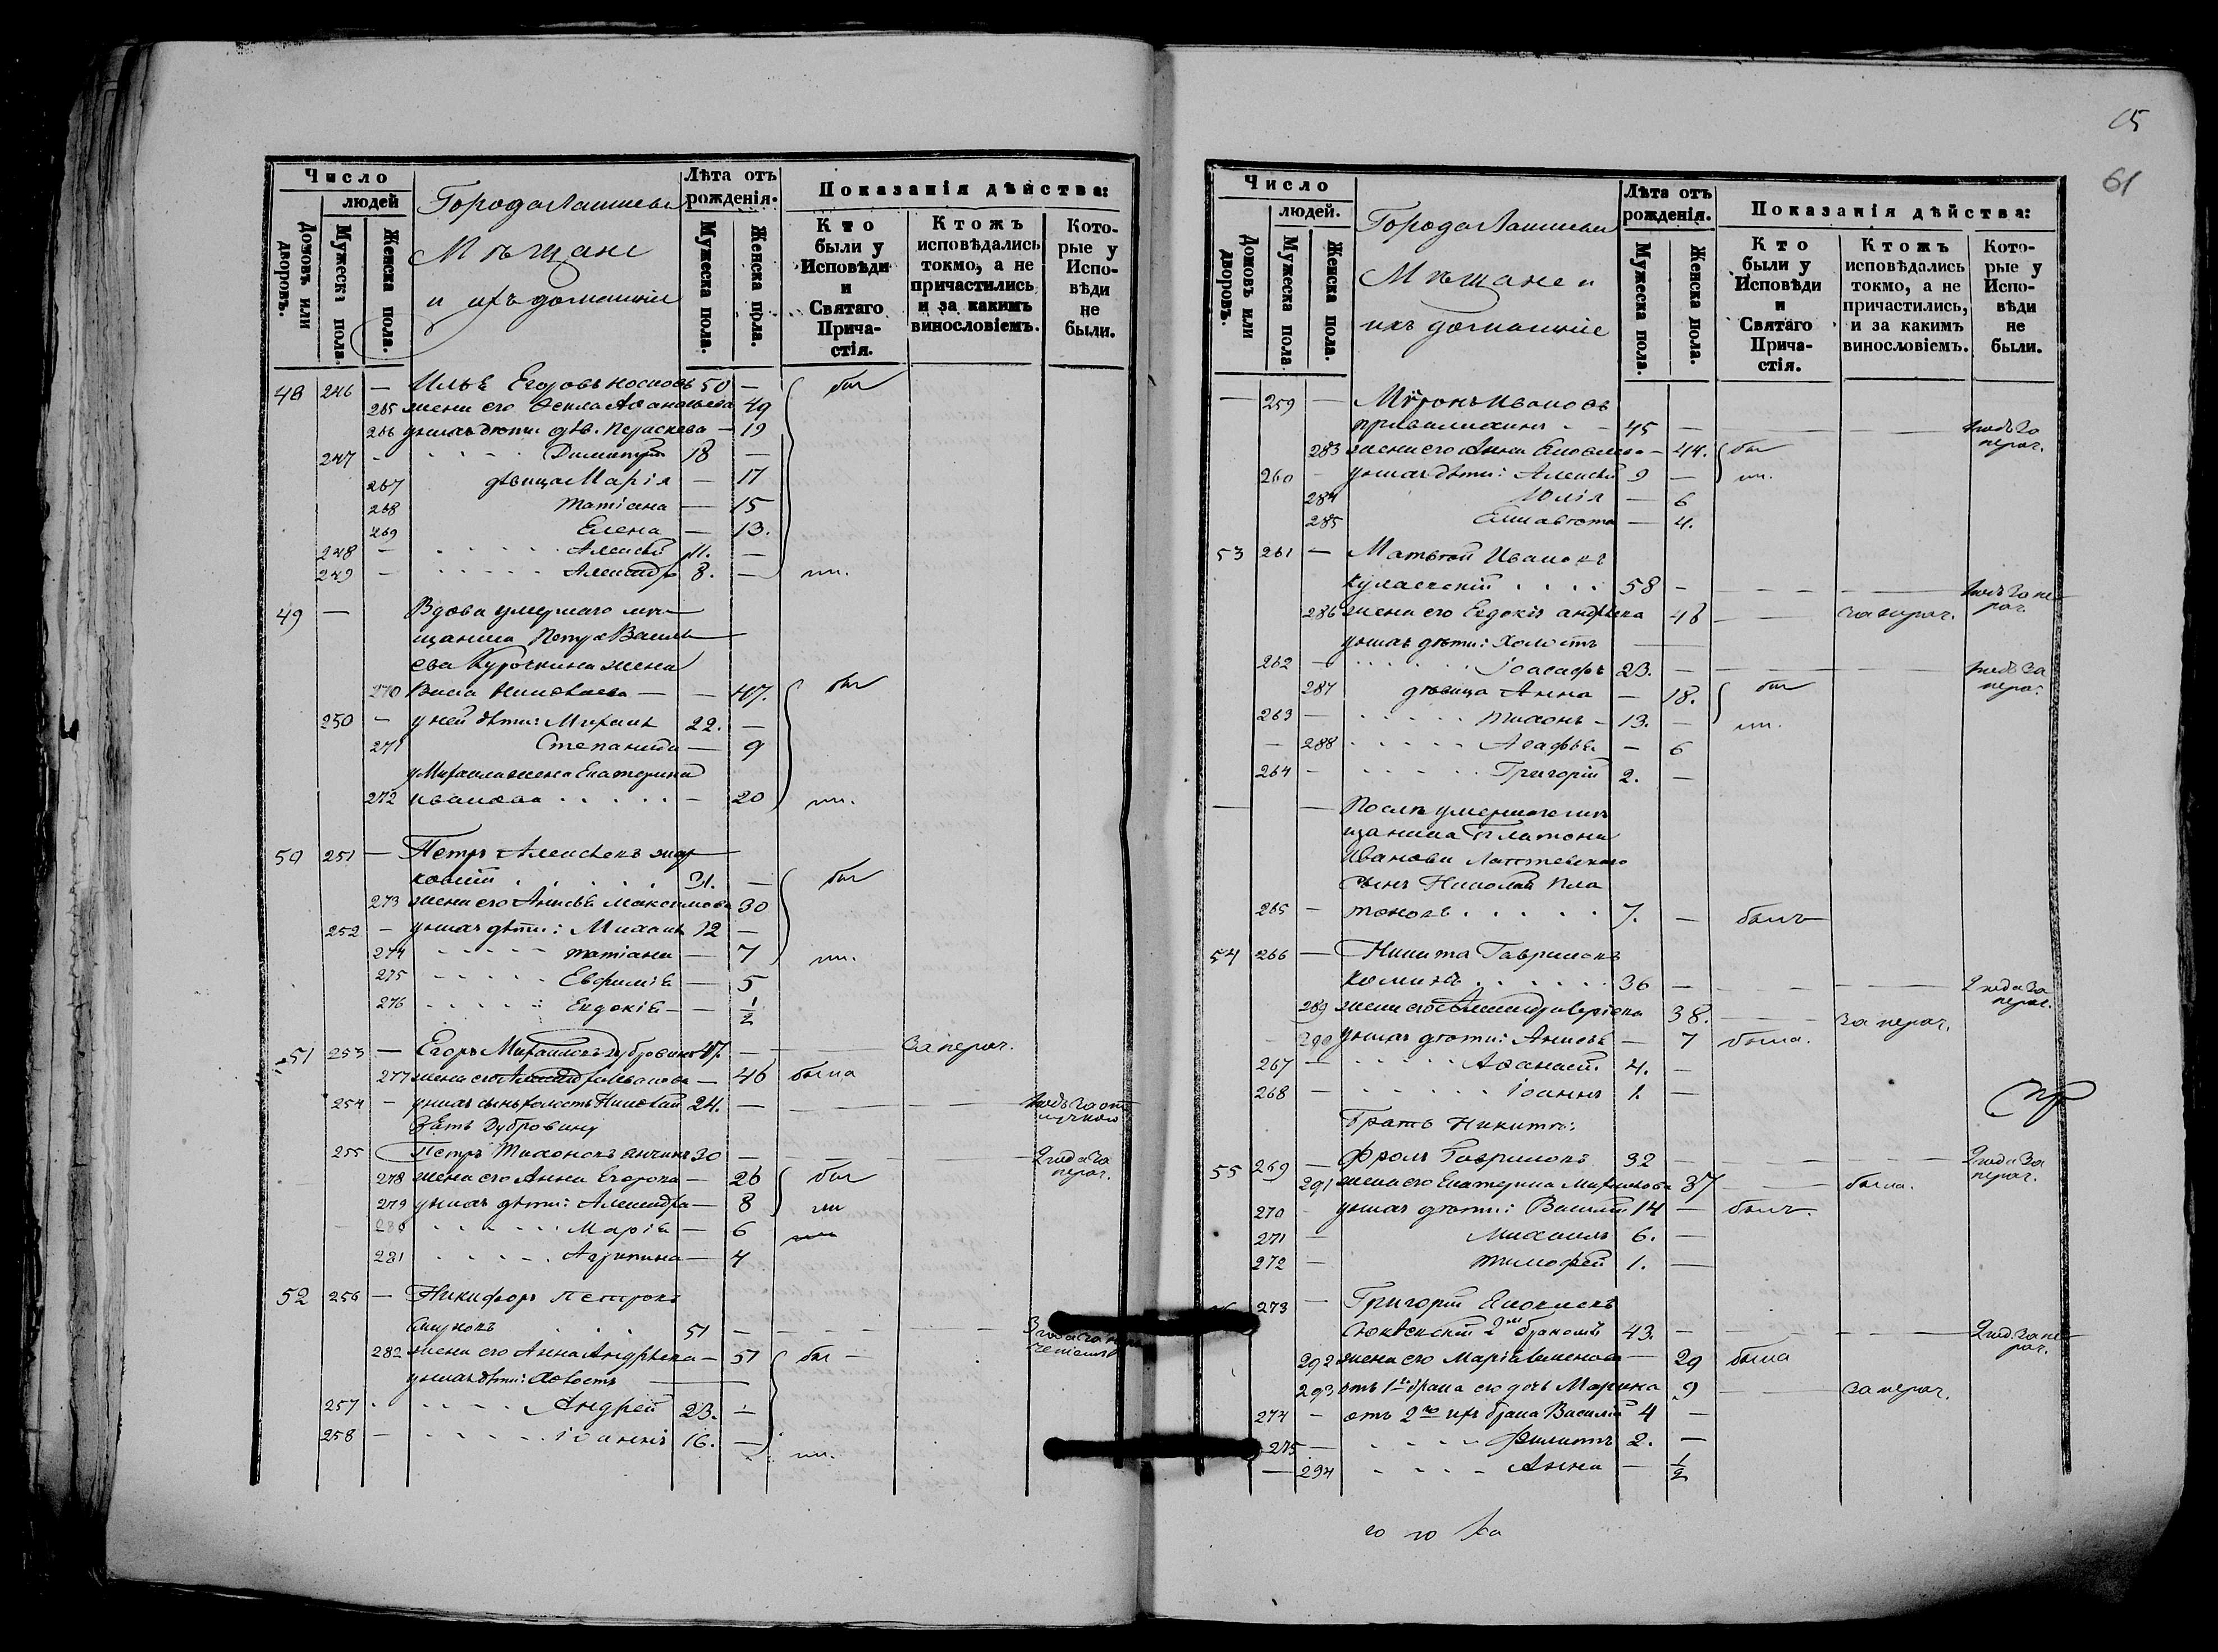 Число
людей
Домовъ или дворовъ.
Мужеска пола.
Женска пола.
Города Лаишева
Мѣщане
и ихъ домашніе
Лѣта отъ рожденія.
Мужеска пола.
Женска пола.
Показанія дѣйства:
Кто были у Исповѣди и Святаго Причастія.
Ктожъ исповѣдались токмо, а не причастились и за какимъ винословіемъ.
Которые у Исповѣди не были.
48 246 — Илья Егоровъ Носковъ 50 —
265 жена его Фекла Аѳанасьева 49
266 у нихъ дѣти: дѣв. Параскева — 19
247 - Димитрій 18 —
267 дѣвица Марія — 17
268 Татіана — 15
269 Елена — 13.
248 - Алексѣй 11. —
249 - Александръ 8. —
49 — Вдова умершаго мѣ-
щанина Петра Василь
ева Курочкина жена
270 — — 47.
250 - у ней дѣти: Михаилъ 22. —
271 Степанида — 9
у Михаила жена Екатерина
272 Иванова - 20
50 251 — Петръ Алексѣевъ
31. —
273 жена его Анисья Максимова 30
252 - у нихъ дѣти: Михаилъ 12 —
274 Татіана — 7
275 Евфимія — 5
276 Евдокія — 1/2
51 253 — Егоръ Михайловъ Дубровинъ 47. — за нерач.
277 жена его Александра Иванова — 46 была
254 - у нихъ сынъ холостъ Николай 24. —
Зять Дубровину
255 Петръ Тихоновъ 30 — 2 года за нерач.
278 жена его Анна Егорова — 26
279 у нихъ дѣти: Александра — 8
280 Марія — 6
281 Агрипина — 4
52 256 — Никифоръ Петровъ
51 —
282 жена его Анна Андреева — 51
у нихъ дѣти: Холостъ
257 Андрей 23. —
258 - Іоаннъ 16. —
61
Число
людей.
Домовъ или дворовъ.
Мужеска пола
Женска пола.
Города Лаишева
Мѣщане и
ихъ домашніе
Лѣта отъ рожденія.
Мужеска пола.
Женска пола.
Показанія дѣйства:
Кто были у Исповѣди и Святаго Причастія.
Ктожъ исповѣдались токмо, а не причастились, и за какимъ винословіемъ.
Которые у Исповѣди не были.
— 259 — Миронъ Ивановъ
45 —
283 жена его Анна — 44.
260 - у нихъ дѣти: Алексѣй 9 —
284 Юлія — 6
285 Елисавета — 4.
53 261 — Матвѣй Ивановъ
58 -
286 жена его Евдокія Андреева 48 за нерач.
у нихъ дѣти: Холостъ
262 - Іоасафъ 23. —
287 дѣвица Анна — 18.
263 — Тихонъ - 13. —
— 288 Агафья — 6
264 - Григорій 2. —
— — Послѣ умершаго мѣ
щанина Платона
Иванова
сынъ Николай Пла
265 - тоновъ 7. — былъ
54 266 — Никита Гавриловъ
36 — 2 года за нерач.
289 жена его Александра 38. за нерач.
290 у нихъ дѣти: Анисья — 7 была.
267 — Аѳанасій 4. —
268 — Іоаннъ 1. —
Братъ Никиты:
55 269 — Фролъ Гавриловъ 32 — 2 года за нерач.
291 жена его Екатерина Михайлова 37 — была.
270 - у нихъ дѣти: Василій 14 — былъ.
271 — Михаилъ 6. —
272 — Тимофей 1. —
273 — Григорій Яковлевъ
2мъ бракомъ 43. —
292 жена его Марія Семенова — 29 была
293 отъ 1го брака его дочь Марина 9 за нерач.
274 - отъ 2го ихъ брака Василій 4 —
275 — Филиппъ 2. —
— 294 Анна — 1/2